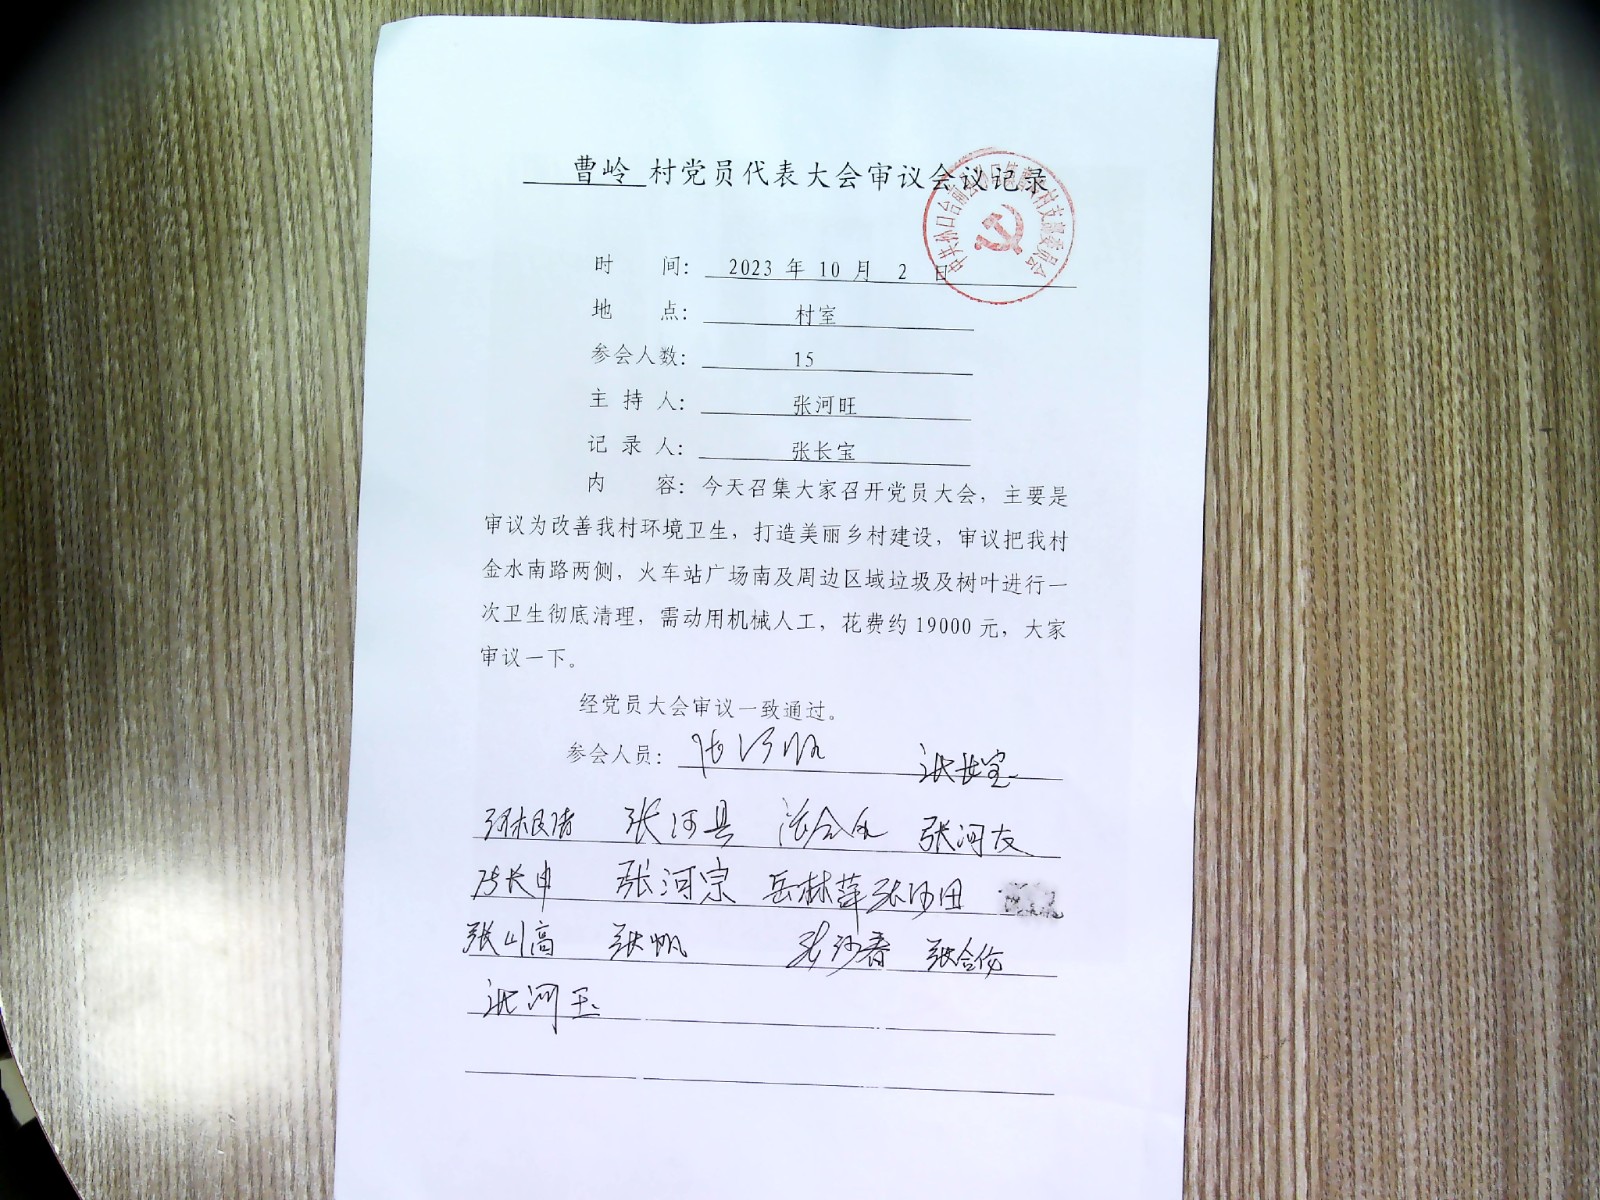 曹岭 村党员代表大会审议会议记录
时 间: 2023 年 10 月 2 日
地 点: 村室
参会人数: 15
主 持 人: 张河旺
记 录 人: 张长宝
内 容: 今天召集大家召开党员大会, 主要是
审议为改善我村环境卫生, 打造美丽乡村建设, 审议把我村
金水南路两侧, 火车站广场南及周边区域垃圾及树叶进行一
次卫生彻底清理, 需动用机械人工, 花费约 19000 元, 大家
审议一下。
经党员大会审议一致通过。
参会人员: 张长宝
张河县 张河友
张长申 张河宗 岳林萍
张山高 张帆
张河玉